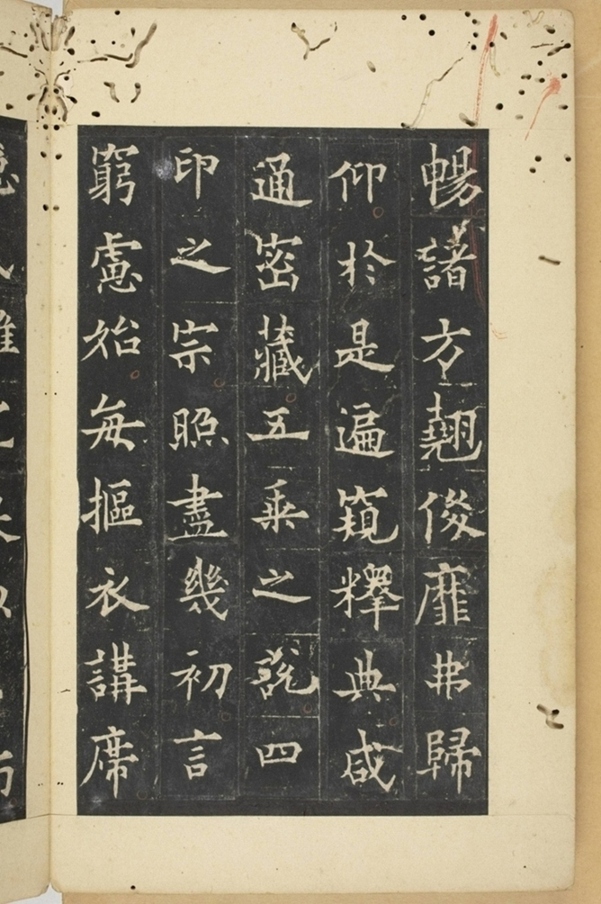 暢諸方翹俊靡弗歸
仰於是遍窺釋典咸
通密藏五乘之説四
印之宗照盡幾初言
窮慮始每摳衣講席